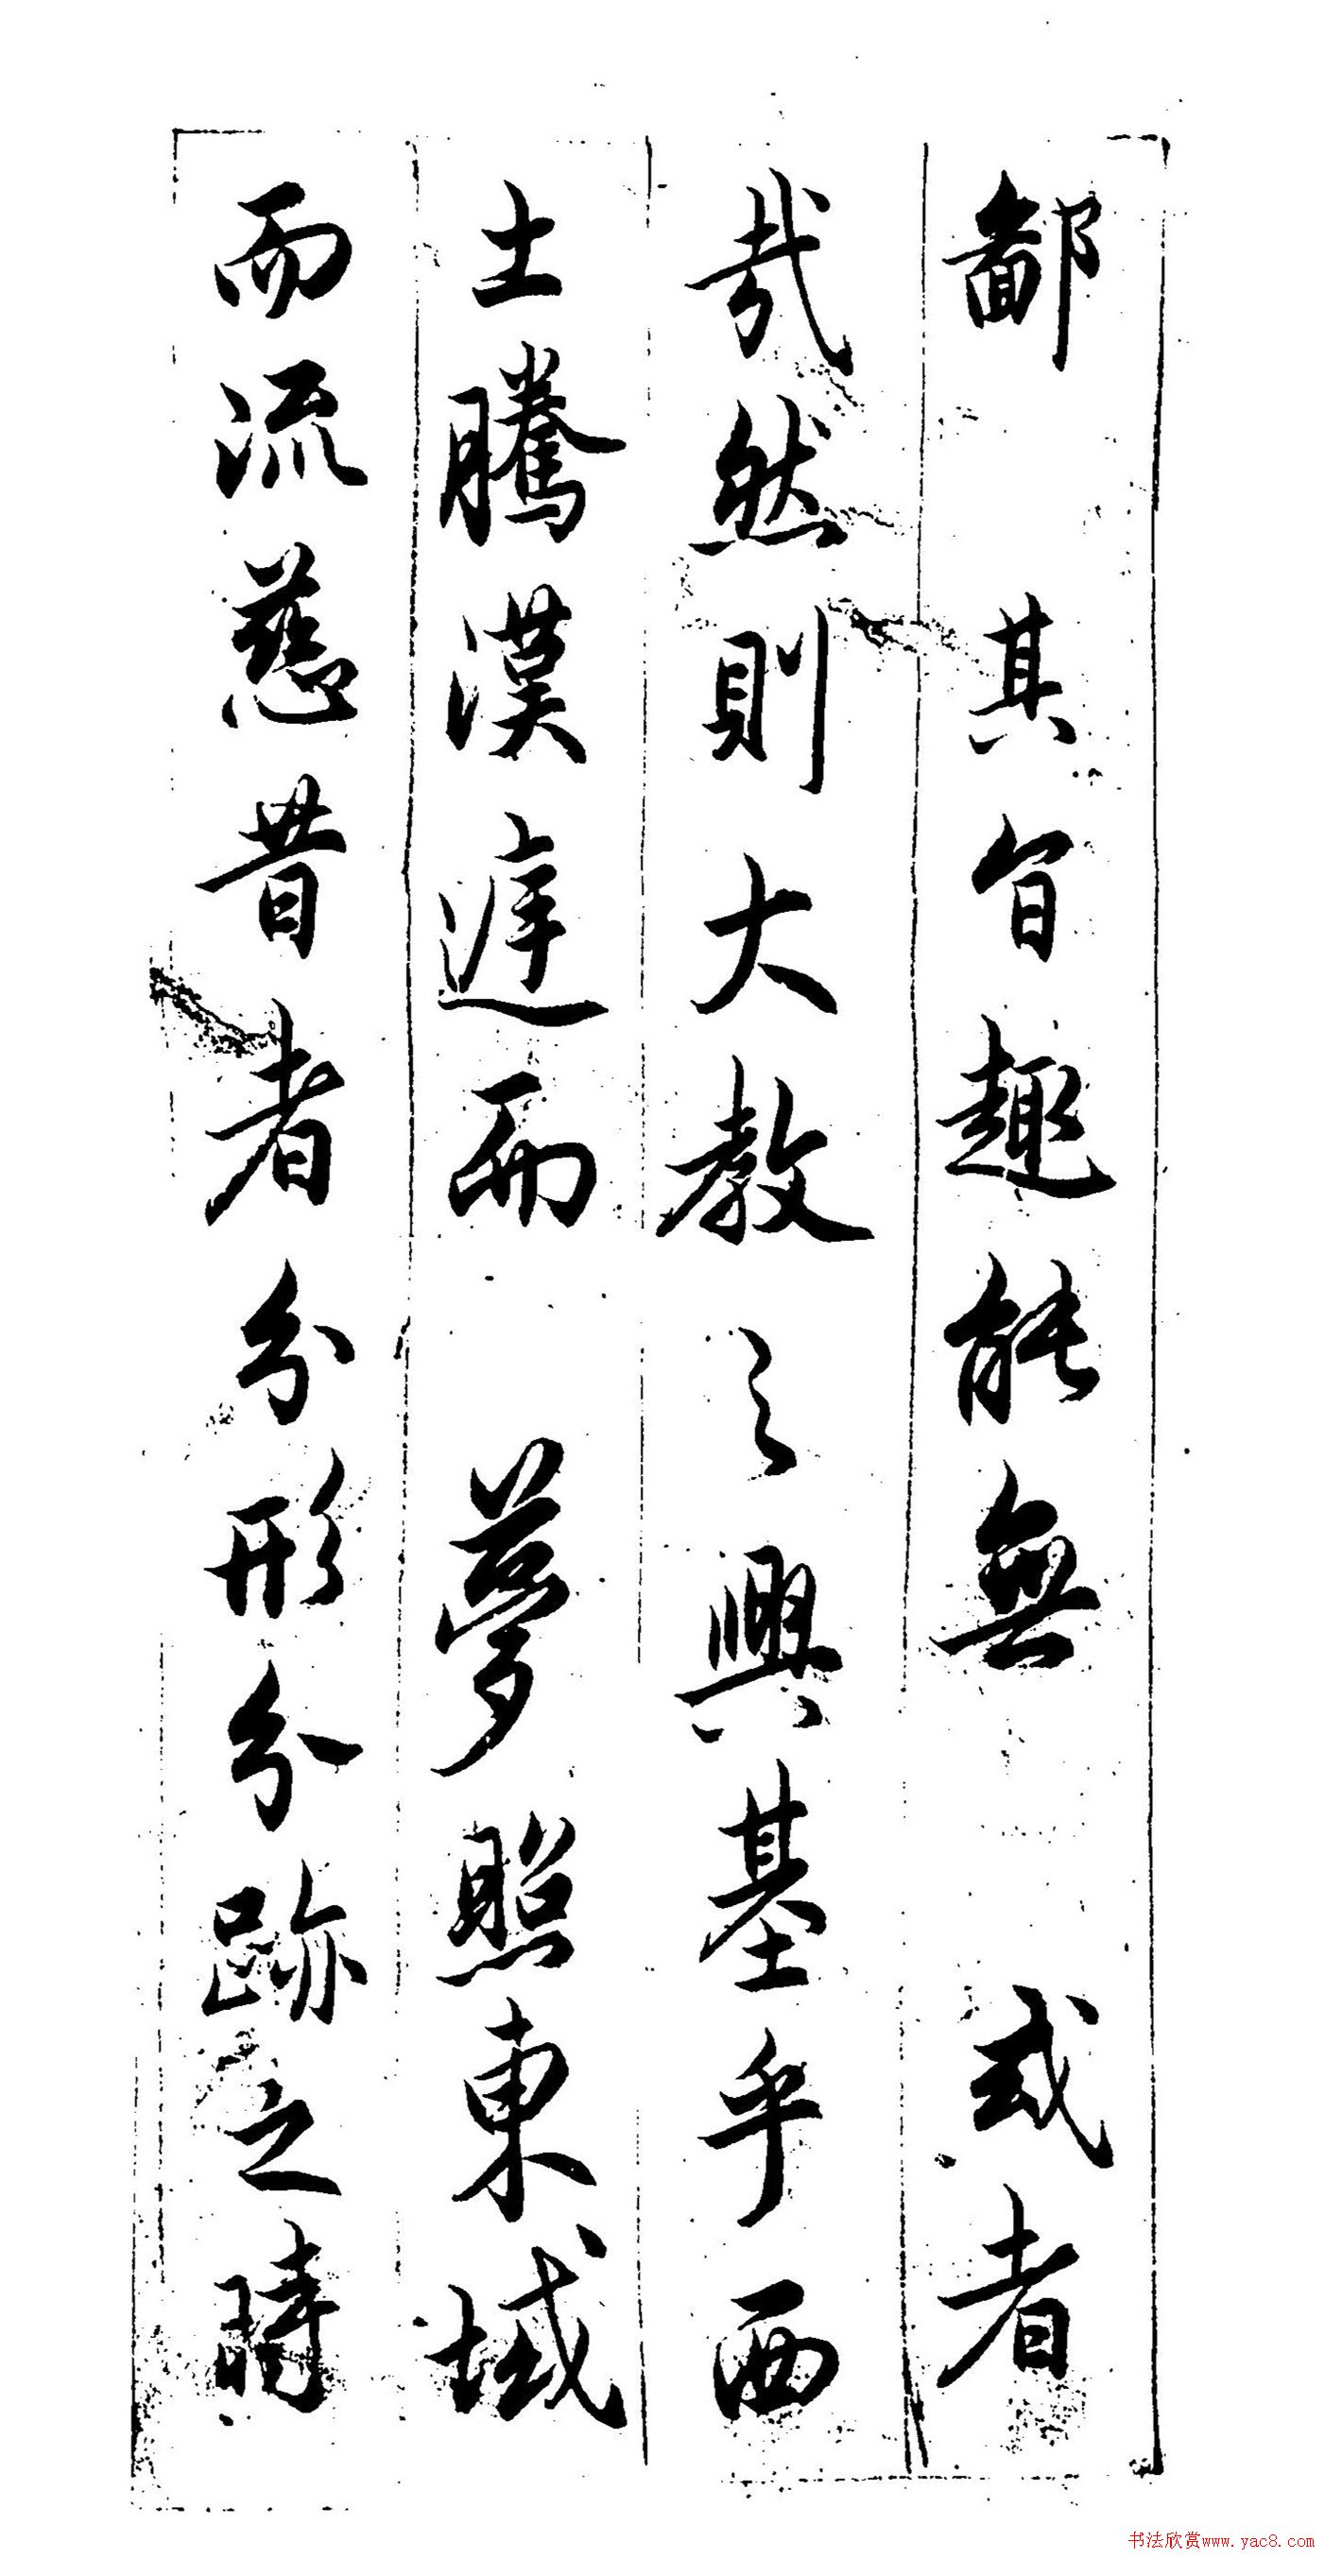 鄙其旨趣能無或者
哉然則大教之興基乎西
土騰漢庭而夢照東域
而流慈昔者分形分跡之時
书法欣赏www.yac8.com